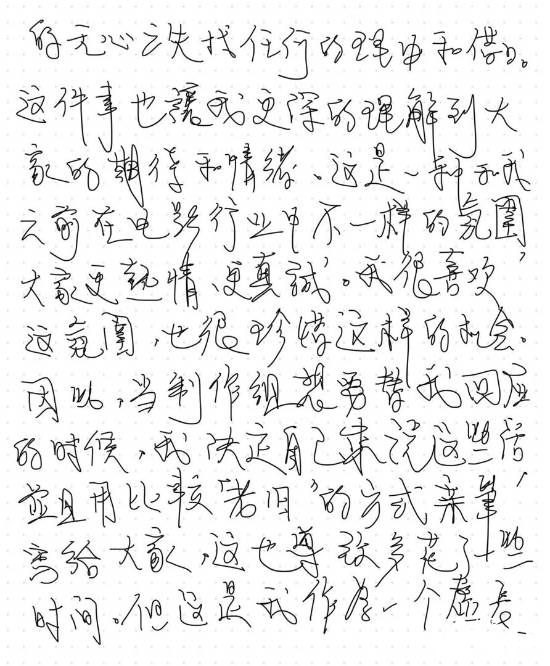 的无心之失找任何的理由和借口。
这件事也讓我更深的理解到大
家的期待和情绪、这是一种和我
之前在电影行业中不一样的氛圍，
大家更熱情、更真誠。我很喜欢
这氛圍，也很珍惜这样的机会。
因此，当制作组想要替我回应
的时候，我决定自己来说这些话，
並且用比较“老旧”的方式亲筆
寫给大家，这也导致多花了一些
时间。但这是我作为一个虚长